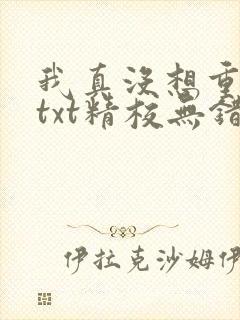 我真没想重
txt精校無錯
伊拉克沙姆伊